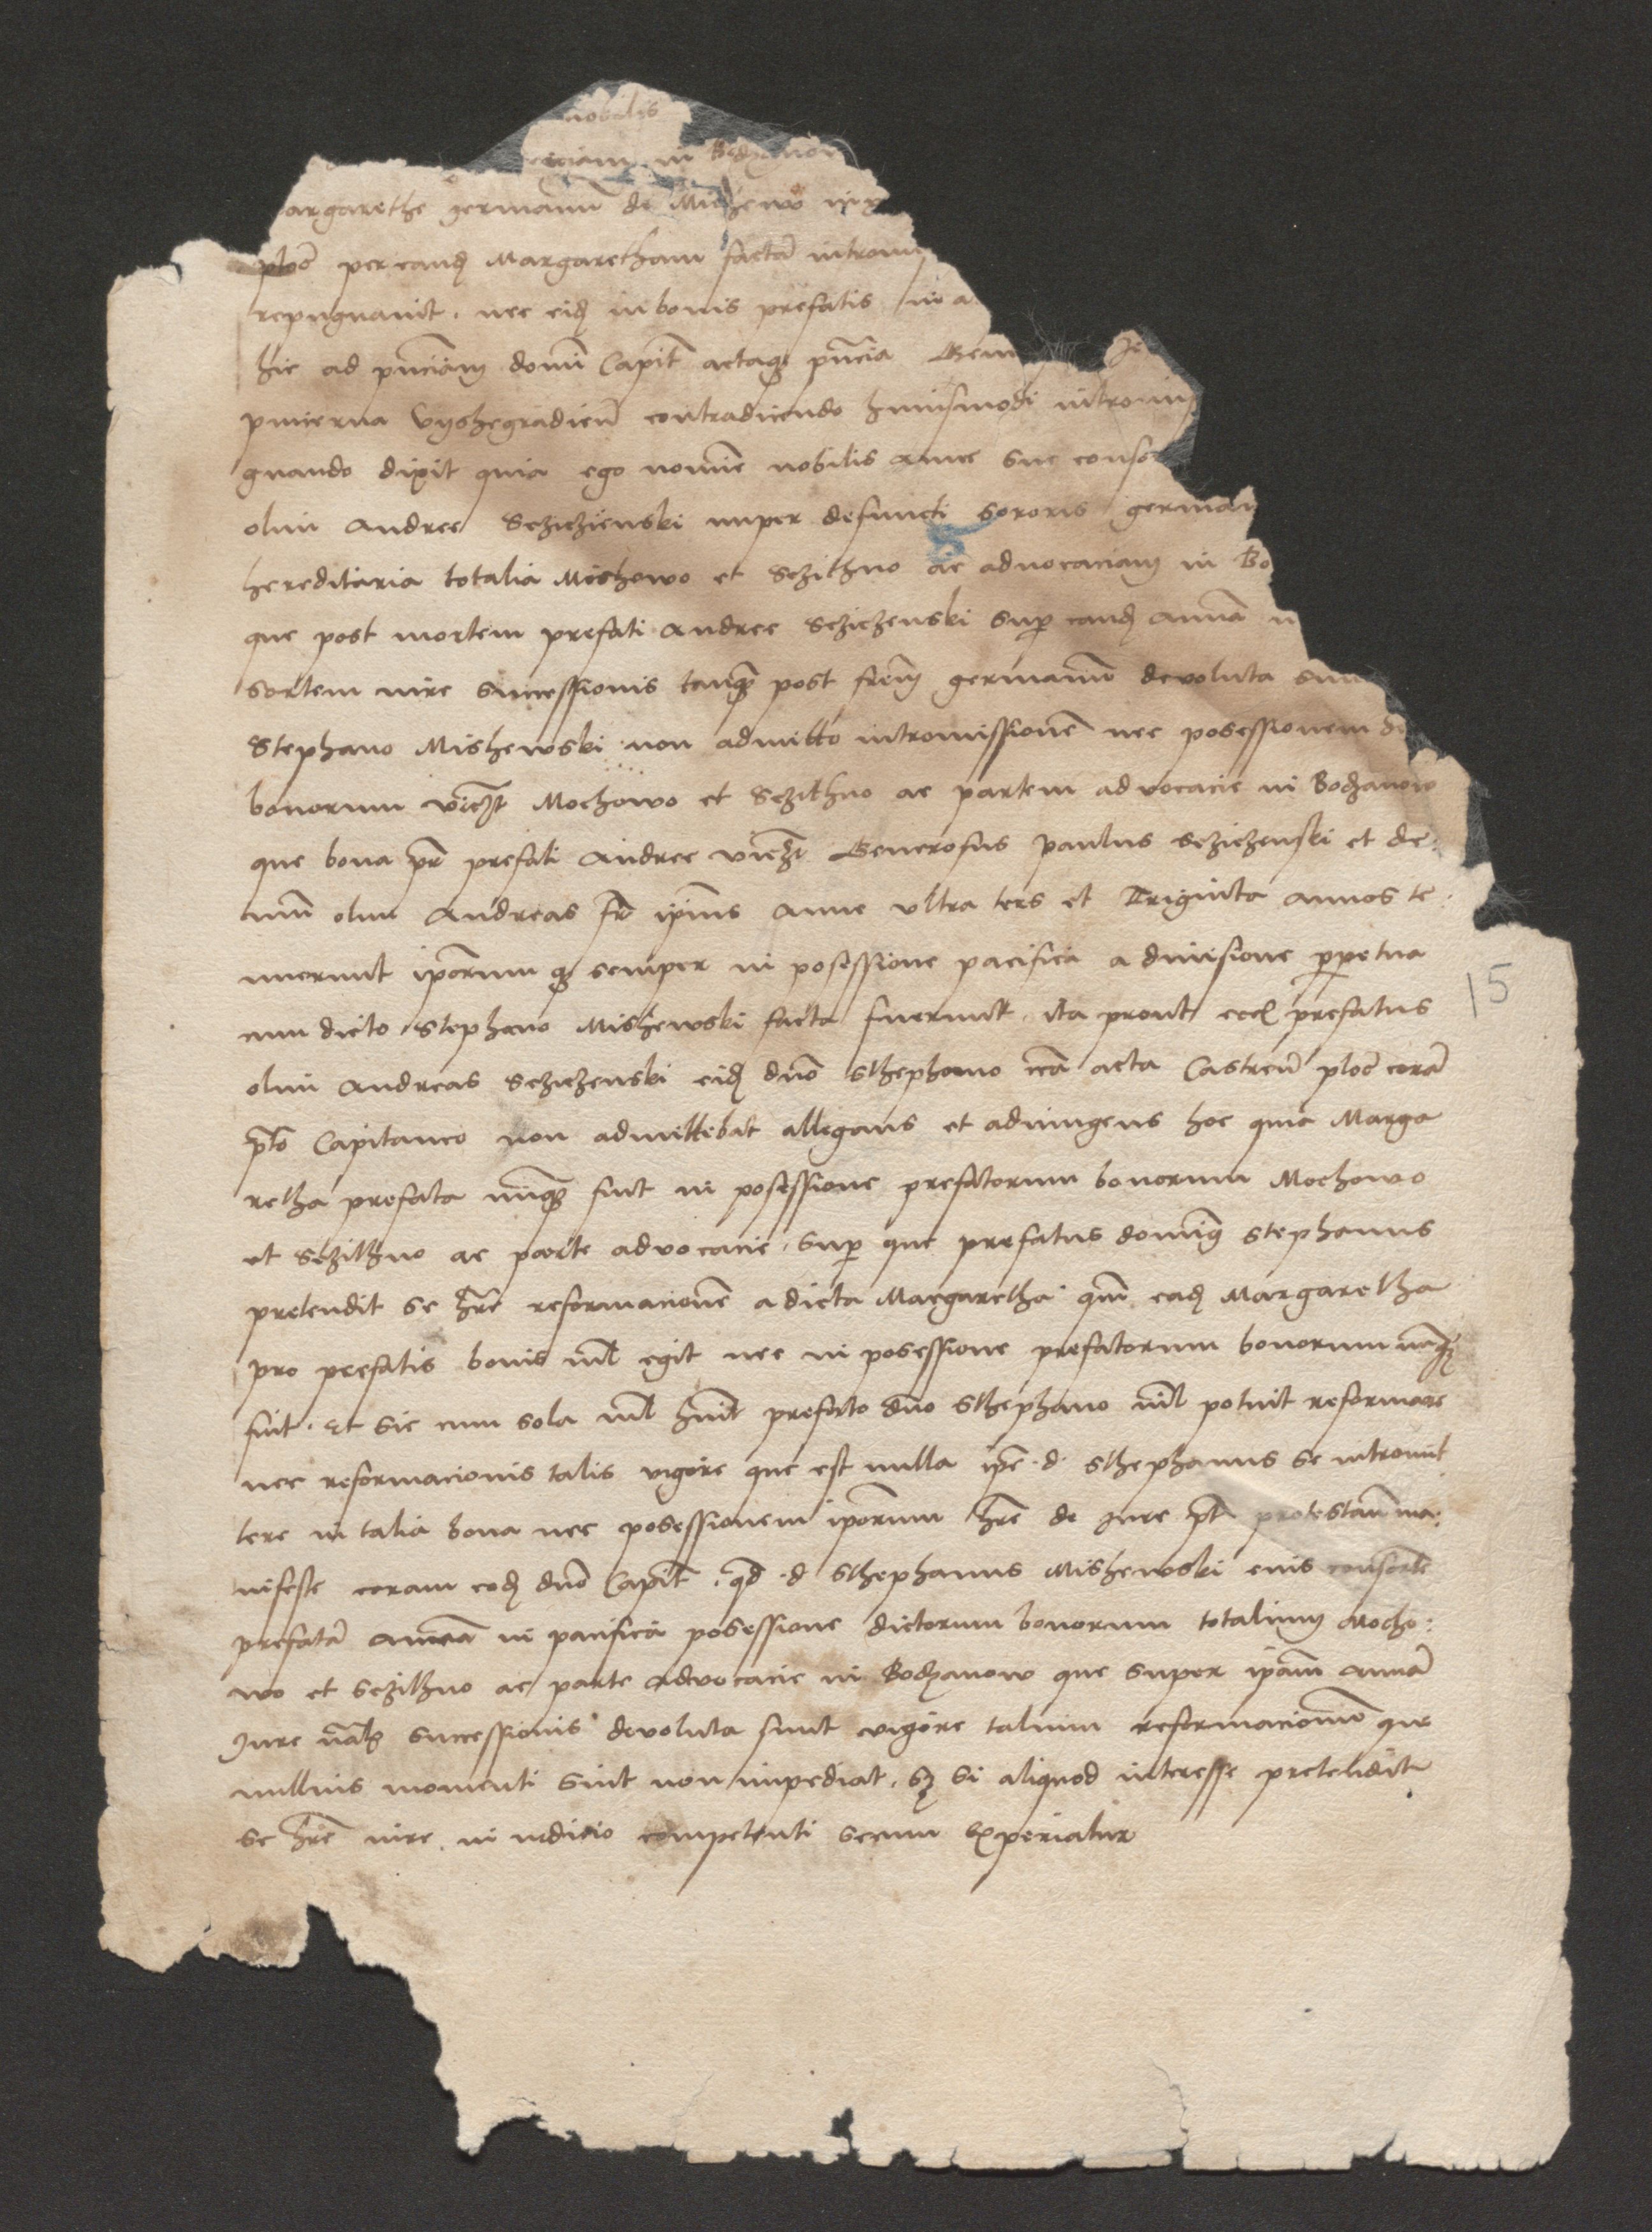 nobilis
in Bodzanow
argarethe germanum de Mishewo in
ploc̃ per eandẽ Margaretham factã intromi
repugnavit. nec eidẽ in bonis prefatis in a
hic ad pñciam domi Capit̃ actaqʒ pñcia Gene
pincerna Vyshegradieñ contradicendo huiusmodi intromis
gnando dixit quia ego nomine nobilis anne sue conso
olim Andree Scziczienski nuper defuncti sororis german
hereditaria totalia Mochowo et Sczithno ac advocaciam in Bo
que post mortem prefati Andree Scziczenski sup eandẽ annã u
sortem iure successionis tanqʒ post frẽm germanũ devoluta sun
Stephano Mishewski non admitto intromissionẽ nec posessionem di
bonorum vicʒt Mochowo et Sczithno ac partem advocacie in Bodzanow
que bona pr̃ prefati Andree vicʒt Generosus Paulus Scziczenski et de:
mũ olim Andreas fr̃ ipius Anne ultra ters et Triginta annos te:
nuerunt ipõrumqʒ semper in posessione pacifica a divisione ppetua
cum dicto Stephano Mishewski facta fuerunt. ita prout eciã prefatus
olim Andreas Scziczenski eidẽ dño Sthephano iux̃ acta Castreñ ploc̃ corã
pto Capitaneo non admittebat allegans et adiungens hoc quia Marga
retha prefata nunqʒ fuit in posessione prefatorum bonorum Mochowo
et Sczithno ac parte advocacie. Sup que prefatus dominꝰ Stephanus
pretendit se hr̃e reformacionẽ a dicta Margaretha qm̃ eadẽ Margaretha
pro prefatis bonis nil egit nec in posessione prefatorum bonorum unqʒ
fuit. Et sic cum sola nil huit prefato dño Sthephano nil potuit reformare
nec reformacionis talis vigore que est nulla ipe .d. Sthephanus se intromit
tere in talia bona nec posessionem ipõrum hr̃e de Jure pt protestañ ma:
nifeste coram eodẽ dño Capit̃. qd .d. Sthephanus Mishewski eius consorte
prefatã annã in pacifica posessione dictorum bonorum totalium Mocho:
wo et Sczithno ac parte advocacie in Bodzanow que super ipam annã
Jure nãli successionis devoluta sunt vigore talium reformacionũ que
nullius momenti sint non impediat. sʒ si aliquod interesse pretendit
se hr̃e iure in iudicio competenti secum experiatur
15